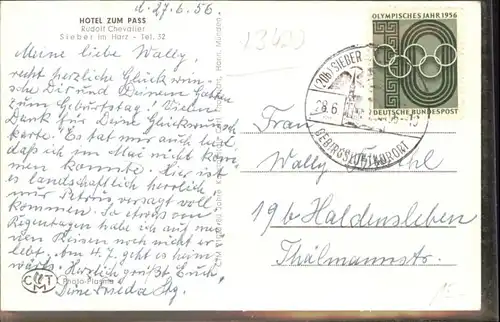 d. 27.6.56.
HOTEL ZUM PASS
Rudolf Chevalier
Sieber im Harz - Tel. 32
Meine liebe Wally,
recht herzliche Glückwün-
sche Dir und Deinem Gatten
zum Geburtstag! Vielen
Dank für Deine Glückwunsch
karte. Es tat mir auch leid
daß ich im Mai nicht kom
men konnte. Hier ist
es landschaftlich herrlich
nur Petrus versagt voll
kommen. So etwas von
Regentagen habe ich auf mei
nen Reisen noch nicht er
lebt. Am 4.7. geht es heim
wärts. Herzlich grüßt Euch
Deine Frieda
CMT
13409
OLYMPISCHES JAHR 1956
7 DEUTSCHE BUNDESPOST
(20b) SIEBER
28.6
GEBIRGSLUFTKURORT
Frau
Wally
19b Haldensleben
Thälmannstr.